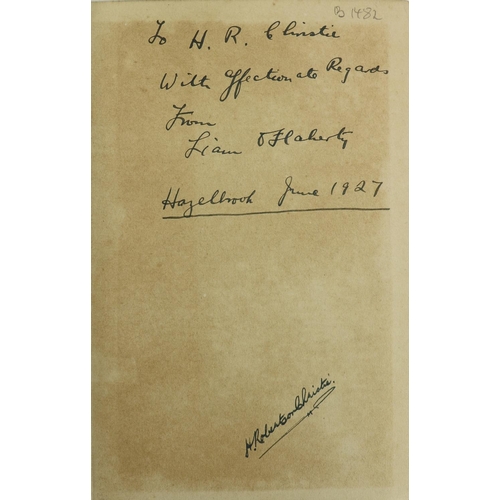 B 1482
To H. R. Christie
With Affectionate Regards
From
Liam O'Flaherty
Hazelbrook June 1927
H. Robertson Christie.